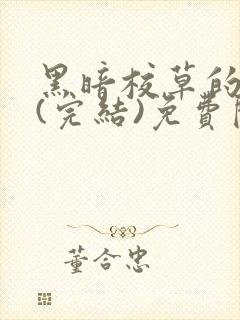 黑暗校草的
(完結)免費
董合忠